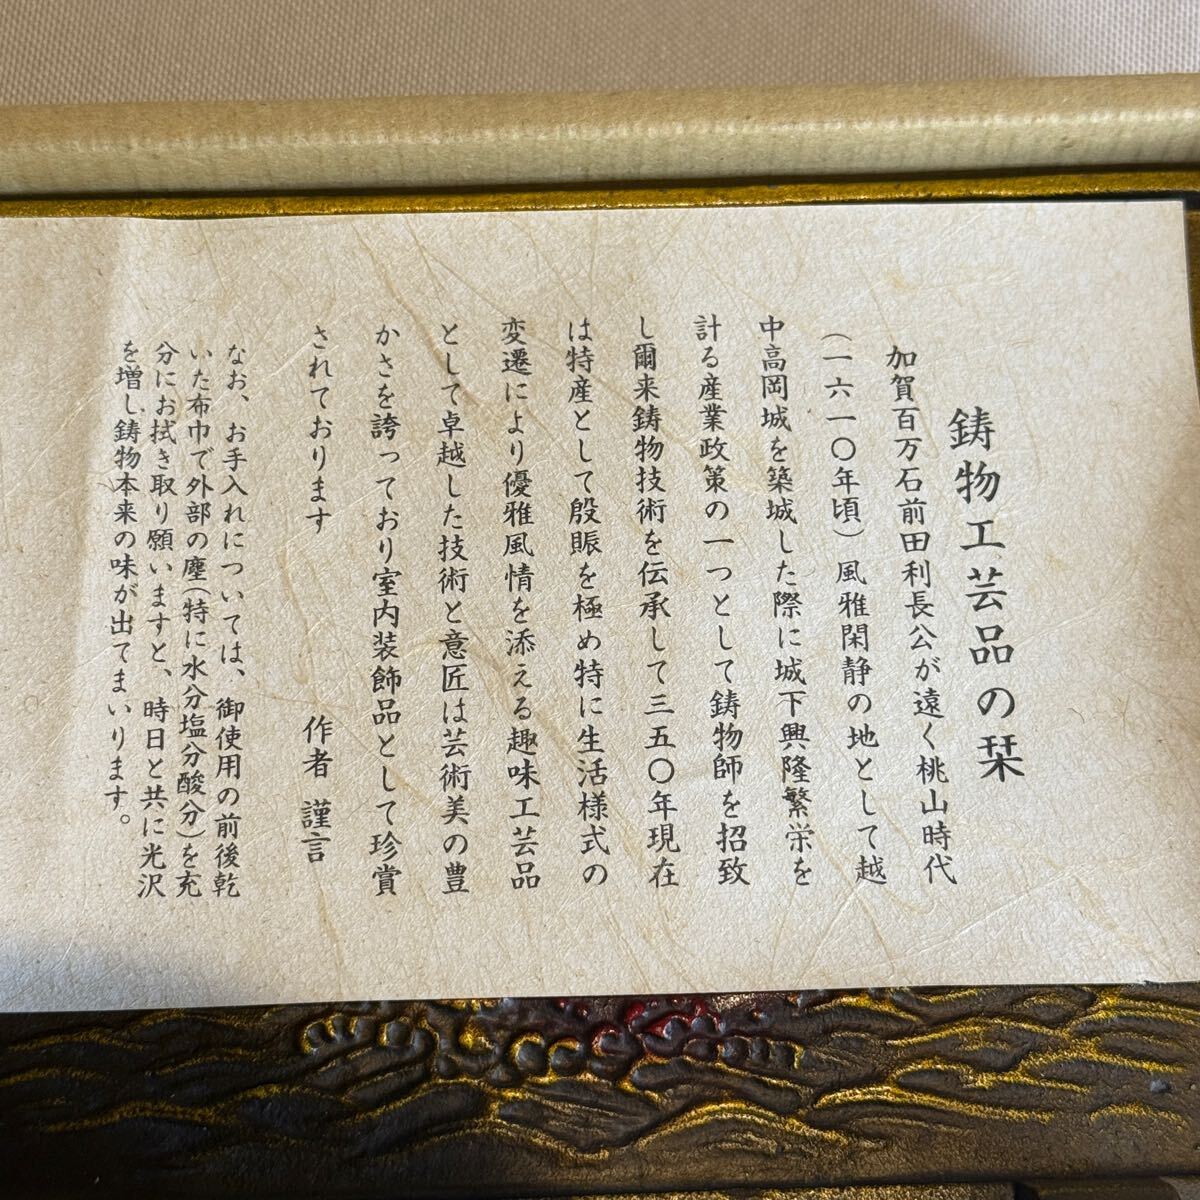 鋳物工芸品の栞
加賀百万石前田利長公が遠く桃山時代
（一六一〇年頃）風雅閑静の地として越
中高岡城を築城した際に城下興隆繁栄を
計る産業政策の一つとして鋳物師を招致
し爾来鋳物技術を伝承して三五〇年現在
は特産として殷賑を極め特に生活様式の
変遷により優雅風情を添える趣味工芸品
として卓越した技術と意匠は芸術美の豊
かさを誇っており室内装飾品として珍賞
されております
作者 謹言
なお、お手入れについては、御使用の前後乾
いた布巾で外部の塵（特に水分塩分酸分）を充
分にお拭き取り願いますと、時日と共に光沢
を増し鋳物本来の味が出てまいります。